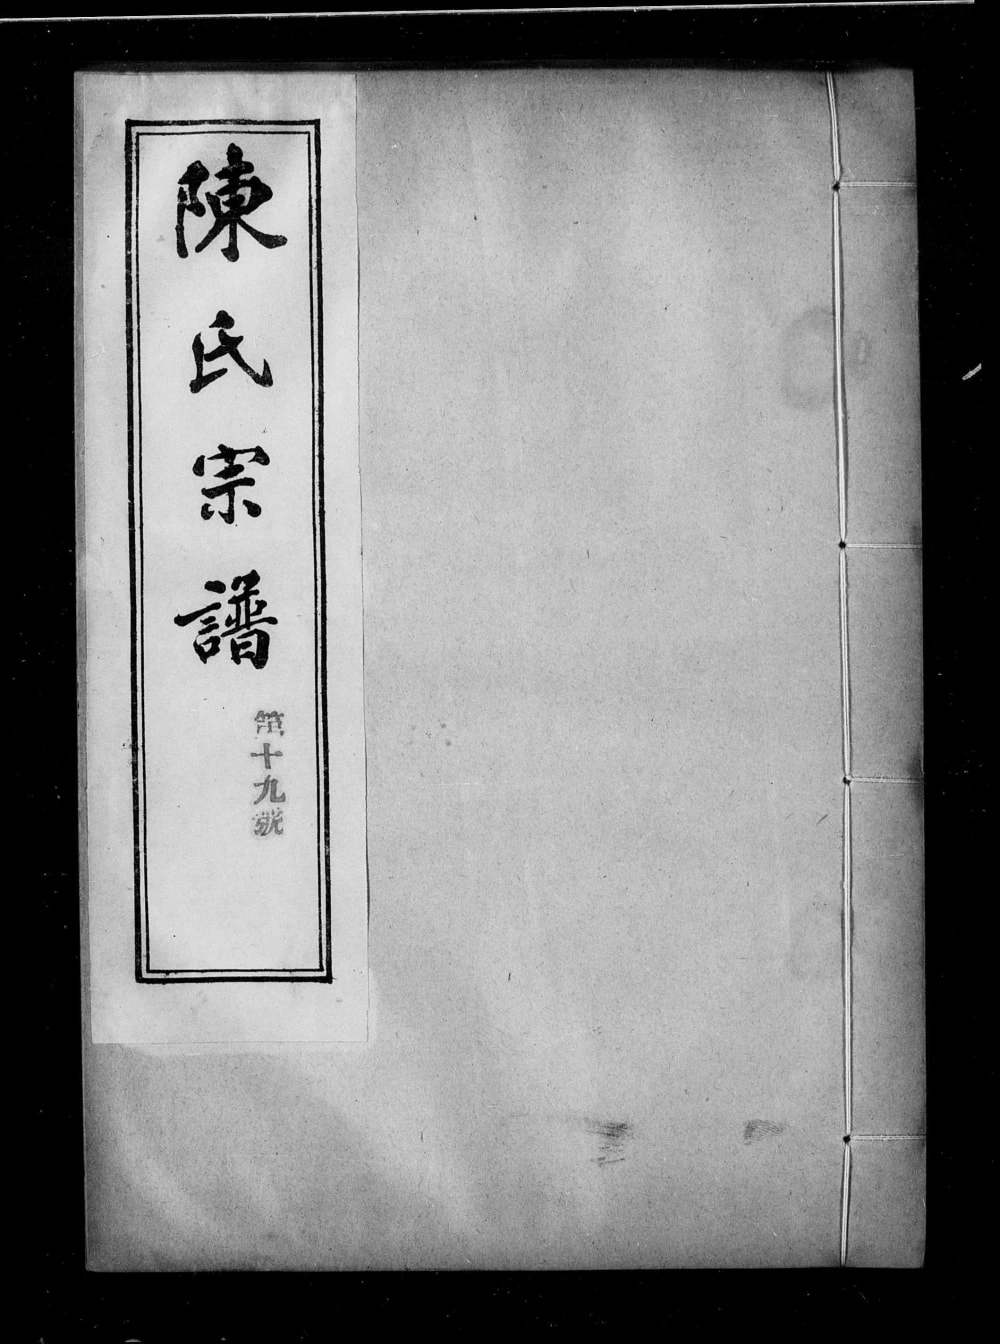 陳氏宗譜
第十九號